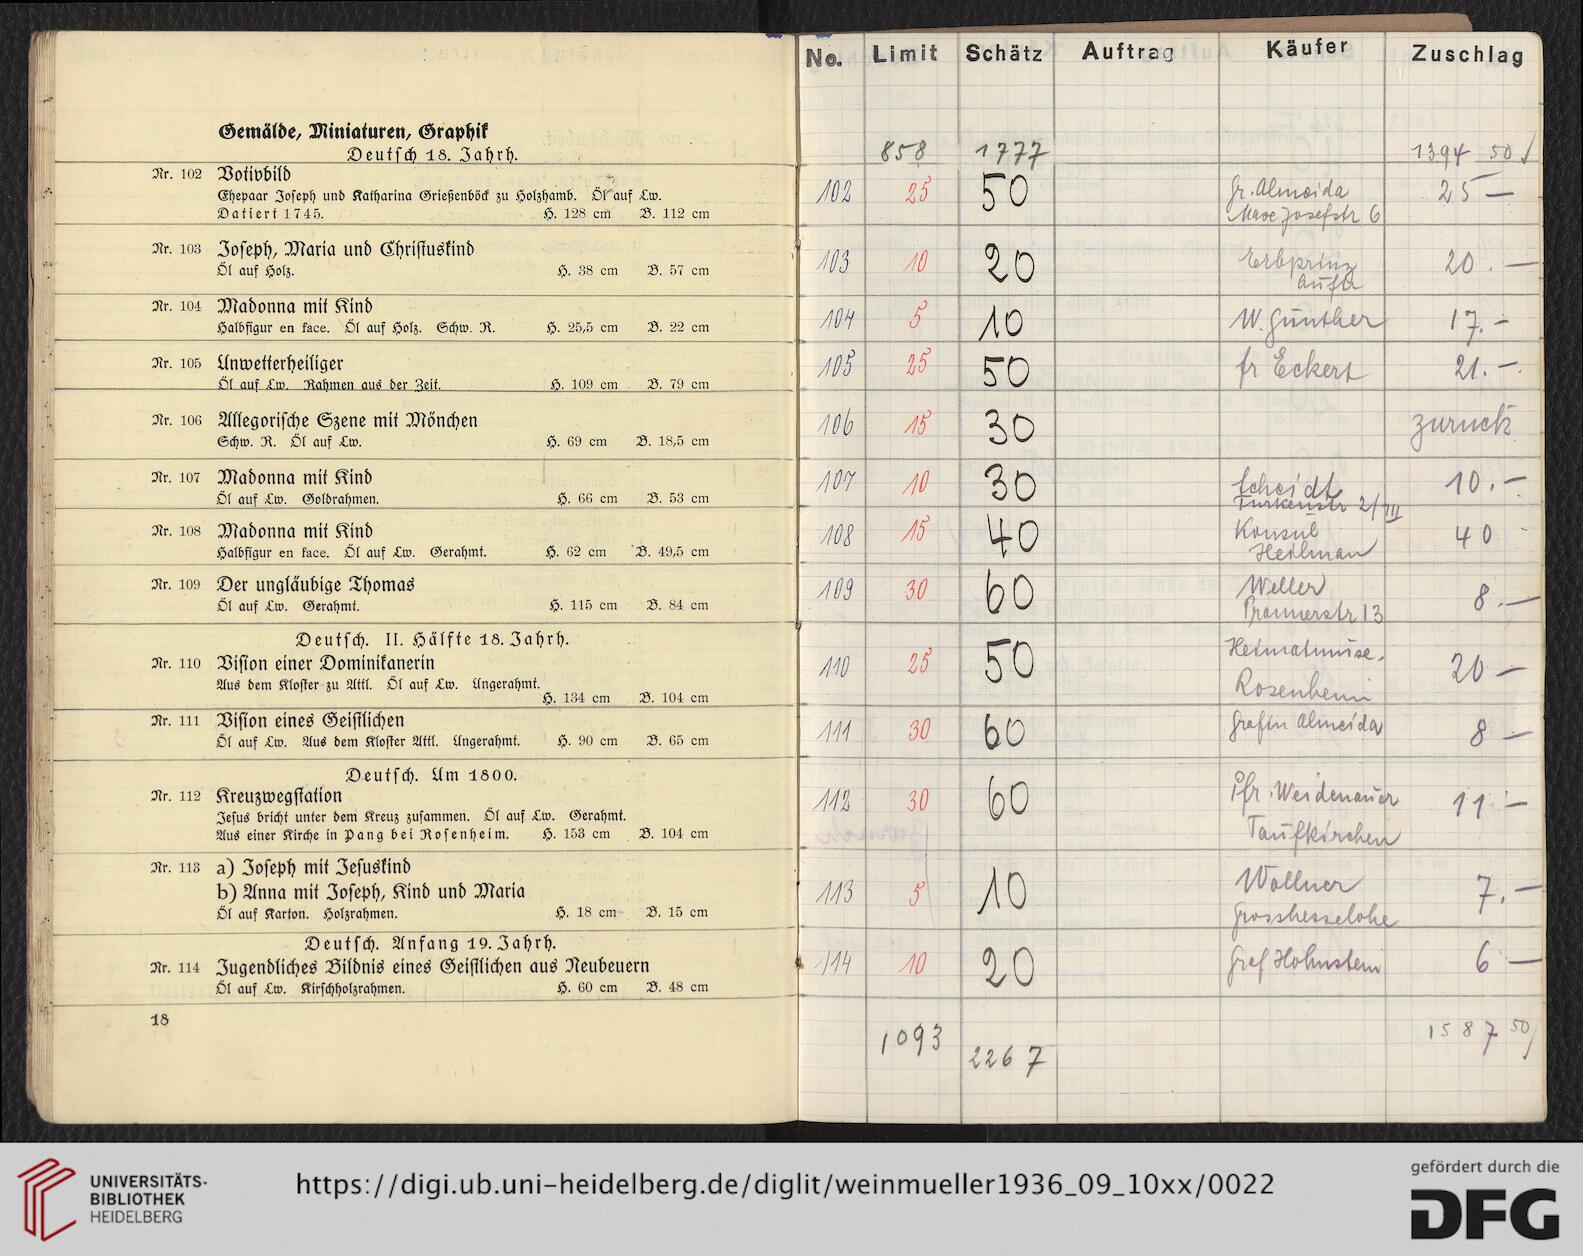 Gemälde, Miniaturen, Graphik
Deutsch 18. Jahrh.
Nr. 102 Votivbild
Ehepaar Joseph und Katharina Grießenböck zu Holzhamb. Öl auf Lw.
Datiert 1745. H. 128 cm B. 112 cm
Nr. 103 Joseph, Maria und Christuskind
Öl auf Holz. H. 38 cm B. 57 cm
Nr. 104 Madonna mit Kind
Halbfigur en face. Öl auf Holz. Schw. R. H. 25,5 cm B. 22 cm
Nr. 105 Unwetterheiliger
Öl auf Lw. Rahmen aus der Zeit. H. 109 cm B. 79 cm
Nr. 106 Allegorische Szene mit Mönchen
Schw. R. Öl auf Lw. H. 69 cm B. 18,5 cm
Nr. 107 Madonna mit Kind
Öl auf Lw. Goldrahmen. H. 66 cm B. 53 cm
Nr. 108 Madonna mit Kind
Halbfigur en face. Öl auf Lw. Gerahmt. H. 62 cm B. 49,5 cm
Nr. 109 Der ungläubige Thomas
Öl auf Lw. Gerahmt. H. 115 cm B. 84 cm
Deutsch. II. Hälfte 18. Jahrh.
Nr. 110 Vision einer Dominikanerin
Aus dem Kloster zu Attl. Öl auf Lw. Ungerahmt.
H. 134 cm B. 104 cm
Nr. 111 Vision eines Geistlichen
Öl auf Lw. Aus dem Kloster Attl. Ungerahmt. H. 90 cm B. 65 cm
Deutsch. Um 1800.
Nr. 112 Kreuzwegstation
Jesus bricht unter dem Kreuz zusammen. Öl auf Lw. Gerahmt.
Aus einer Kirche in Pang bei Rosenheim. H. 153 cm B. 104 cm
Nr. 113 a) Joseph mit Jesuskind
b) Anna mit Joseph, Kind und Maria
Öl auf Karton. Holzrahmen. H. 18 cm B. 15 cm
Deutsch. Anfang 19. Jahrh.
Nr. 114 Jugendliches Bildnis eines Geistlichen aus Neubeuern
Öl auf Lw. Kirschholzrahmen. H. 60 cm B. 48 cm
18
No. Limit Schätz Auftrag Käufer Zuschlag
858 1777 1394 50
102 25 50 Gr. Almeida 25 —
Max Josefstr 6
103 10 20 Erbprinz 20. —
104 5 10 W. Günther 17. –
105 25 50 fr Eckert 21. –
106 15 30 zurück
107 10 30 Scheidt 10. –
Türkenstr 2/III
108 15 40 Konsul 40 -
Heilman
109 30 60 Weller 8. —
Prannerstr 13
110 25 50 Heimatmuse. 20 —
Rosenheim
111 30 60 Gräfin Almeida 8 —
112 30 60 Pfr. Weidenauer 11. —
Taufkirchen
113 5 10 Wollner 7. —
Grosshesselohe
114 10 20 Graf Hohnstein 6 —
1093 2267 1587 50
UNIVERSITÄTS-
BIBLIOTHEK
HEIDELBERG
https://digi.ub.uni-heidelberg.de/diglit/weinmueller1936_09_10xx/0022
gefördert durch die
DFG